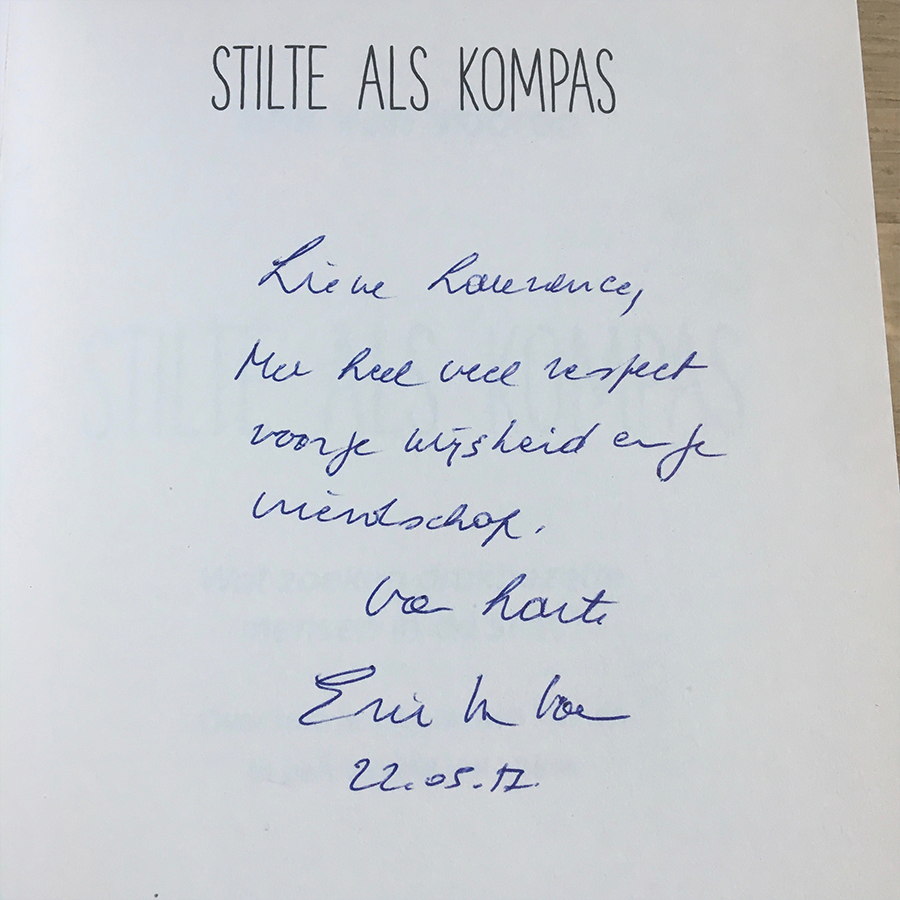 STILTE ALS KOMPAS
Lieve Laurence,
Met heel veel respect
voor je wijsheid en je
vriendschap.
Van harte
22.05.17.